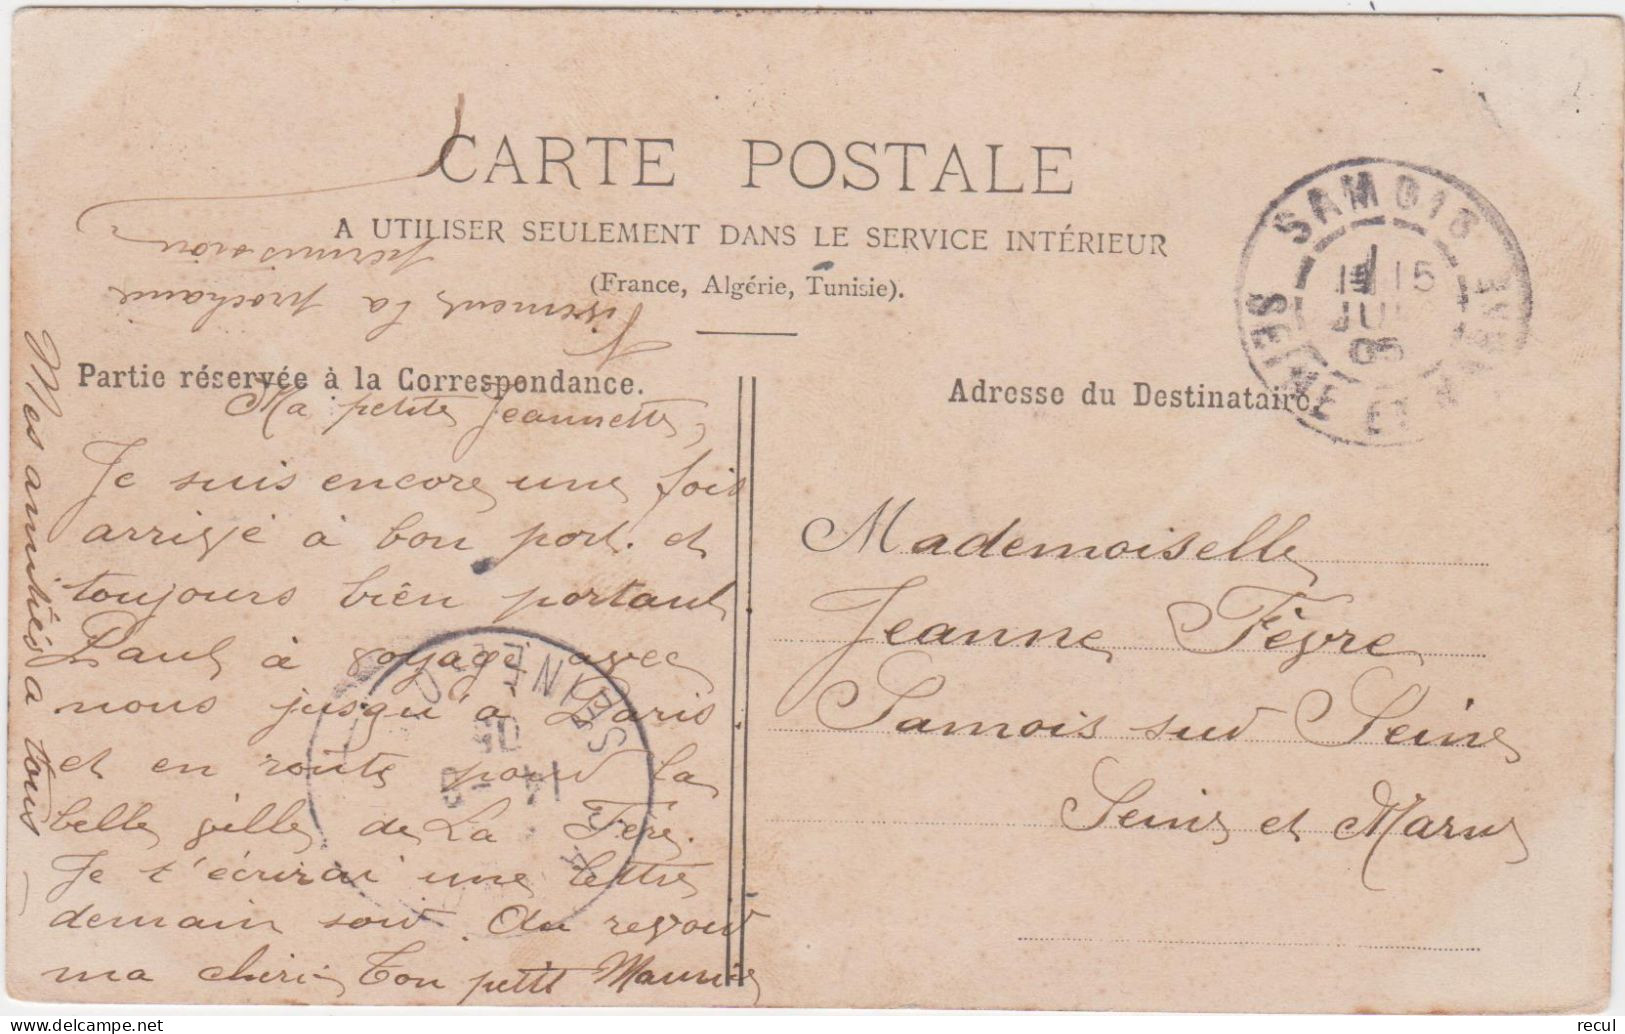 CARTE POSTALE
A UTILISER SEULEMENT DANS LE SERVICE INTÉRIEUR
(France, Algérie, Tunisie).
Partie réservée à la Correspondance.
Adresse du Destinataire
SAMOIS
15
JUI
05
SEINE ET MARNE
Ma petite Jeannette,
Je suis encore une fois
arrivé à bon port. et
toujours bien portant
Paul à voyagé avec
nous jusqu'à Paris
et en route pour la
belle ville de La Fère.
Je t'écrirai une lettre
demain soir. Au revoir
ma chérie Ton petit Maurice
Mes amitiés a tous
Vivement la prochaine
permission
Mademoiselle
Jeanne Fèvre
Samois sur Seine
Seine et Marne
SEINE
05
14
delcampe.net
recul